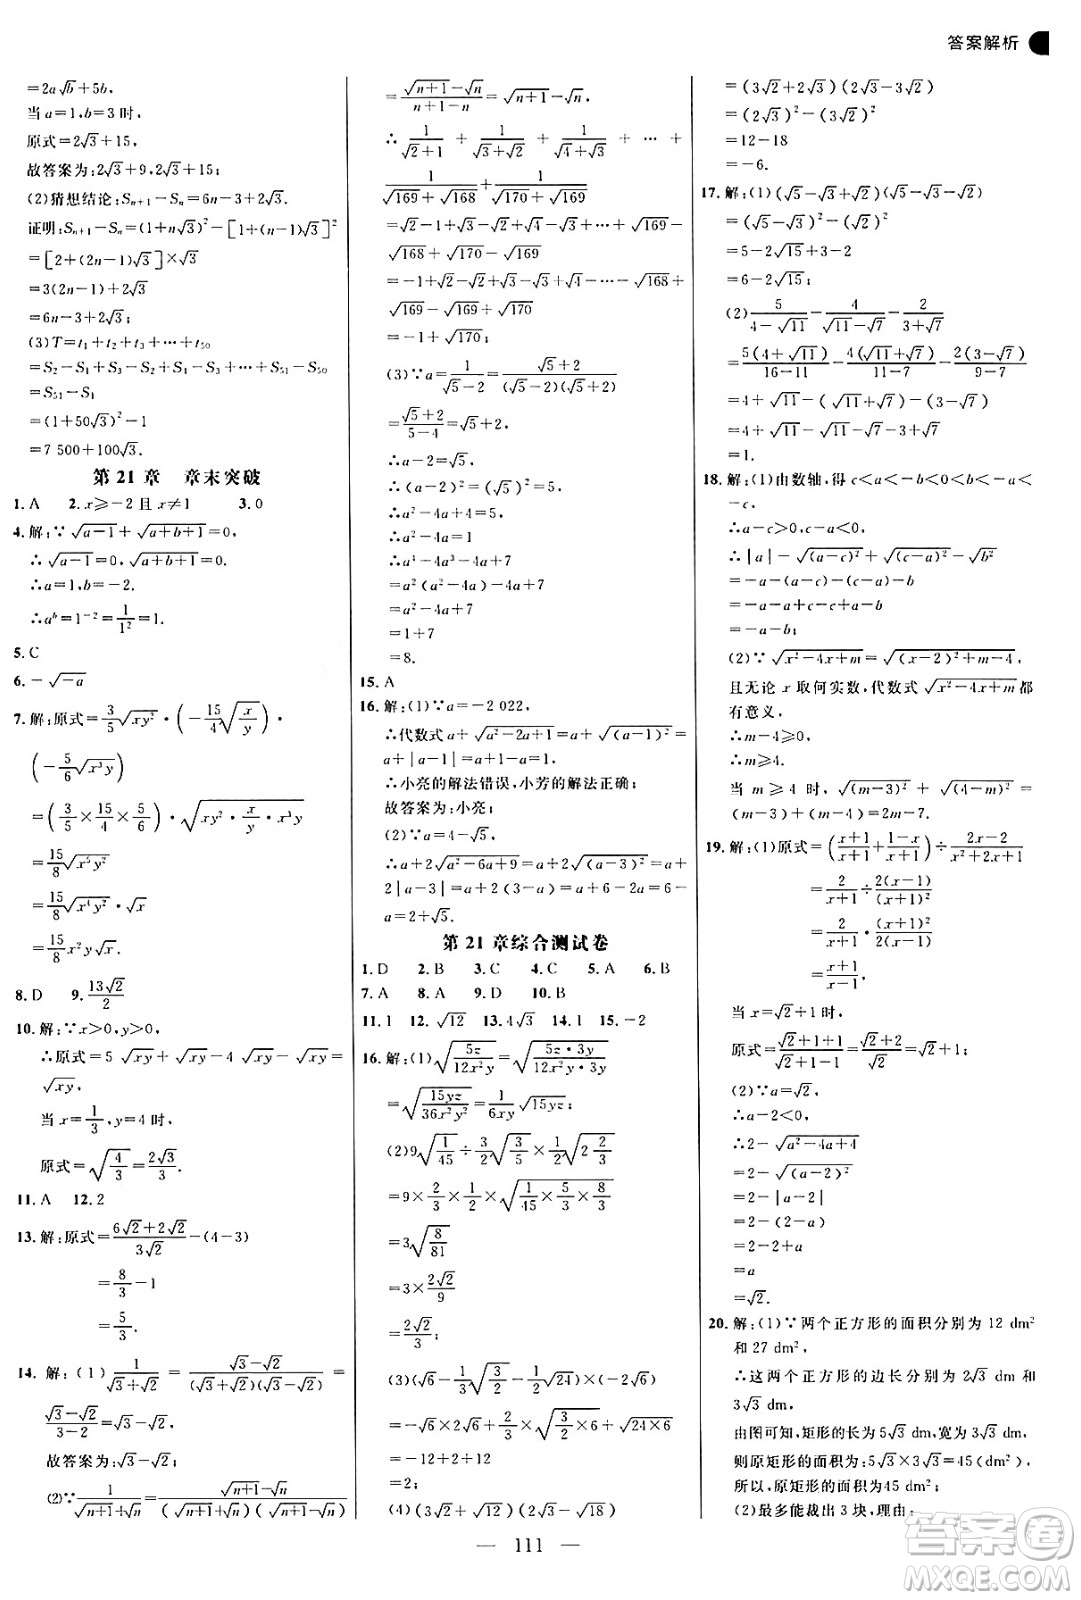 答案解析
=2a√b+5b.
当 a=1,b=3 时,
原式=2√3+15,
故答案为:2√3+9,2√3+15;
(2)猜想结论:Sₙ₊₁-Sₙ=6n-3+2√3.
证明:Sₙ₊₁-Sₙ=(1+n√3)²-[1+(n-1)√3]²
=[2+(2n-1)√3]×√3
=3(2n-1)+2√3
=6n-3+2√3;
(3)T=t₁+t₂+t₃+…+t₅₀
=S₂-S₁+S₃-S₂+S₄-S₃+…+S₅₁-S₅₀
=S₅₁-S₁
=(1+50√3)²-1
=7 500+100√3.
第 21 章 章末突破
1. A 2. x≥-2 且 x≠1 3. 0
4. 解:∵√(a-1)+√(a+b+1)=0,
∴√(a-1)=0,√(a+b+1)=0.
∴a=1,b=-2.
∴aᵇ=1⁻²=1/1²=1.
5. C
6. -√(-a)
7. 解:原式=3/5√(xy²)·(-15/4√(x/y))·
(-5/6√(x³y))
=(3/5×15/4×5/6)·√(xy²·x/y·x³y)
=15/8√(x⁵y²)
=15/8√(x⁴y²)·√x
=15/8x²y√x.
8. D 9. 13√2/2
10. 解:∵x>0,y>0,
∴原式=5√(xy)+√(xy)-4√(xy)=
√(xy).
当 x=1/3,y=4 时,
原式=√(4/3)=2√3/3.
11. A 12. 2
13. 解:原式=(6√2+2√2)/(3√2)-(4-3)
=8/3-1
=5/3.
14. 解:(1)1/(√3+√2)=(√3-√2)/((√3+√2)(√3-√2))=
(√3-√2)/(3-2)=√3-√2.
故答案为:√3-√2;
(2)∵1/(√(n+1)+√n)=(√(n+1)-√n)/((√(n+1)+√n)(√(n+1)-√n))
=(√(n+1)-√n)/(n+1-n)=√(n+1)-√n.
∴1/(√2+1)+1/(√3+√2)+1/(√4+√3)+…+
1/(√169+√168)+1/(√170+√169)
=√2-1+√3-√2+√4-√3+…+√169-
√168+√170-√169
=-1+√2-√2+√3-√3+…-√168+
√169-√169+√170
=-1+√170;
(3)∵a=1/(√5-2)=(√5+2)/((√5-2)(√5+2))
=(√5+2)/(5-4)=√5+2.
∴a-2=√5,
∴(a-2)²=(√5)²=5.
∴a²-4a+4=5.
∴a²-4a=1
∴a⁴-4a³-4a+7
=a²(a²-4a)-4a+7
=a²-4a+7
=1+7
=8.
15. A
16. 解:(1)∵a=-2 022,
∴代数式 a+√(a²-2a+1)=a+√(a-1)²=
a+|a-1|=a+1-a=1.
∴小亮的解法错误,小芳的解法正确;
故答案为:小亮;
(2)∵a=4-√5,
∴a+2√(a²-6a+9)=a+2√(a-3)²=a+
2|a-3|=a+2(3-a)=a+6-2a=6-a
=2+√5.
第 21 章综合测试卷
1. D 2. B 3. C 4. C 5. A 6. B
7. A 8. A 9. D 10. B
11. 1 12. √12 13. 4√3 14. 1 15. -2
16. 解:(1)√(5z/12x²y)=√(5z·3y/12x²y·3y)
=√(15yz/36x²y²)=1/(6xy)√(15yz);
(2)9√(1/45)÷3/2√(1/24)×1/3√(2 2/3)
=9×2/3×1/3×√(1/45×24/5×8/3)
=3√(8/81)
=3×2√2/9
=2√2/3;
(3)(-√6+2√(3/2)-1/2√24)×(-√6)
=√6×√6-2√(3/2×6)+1/2√(24×6)
=-12+2+12
=2;
(4)(3√2+√12)(2√3-√18)
=(3√2+2√3)(2√3-3√2)
=(2√3)²-(3√2)²
=12-18
=-6.
17. 解:(1)(√5-√3+√2)(√5-√3-√2)
=(√5-√3)²-(√2)²
=5-2√15+3-2
=6-2√15;
(2)5/(4-√11)-4/(√11-√7)-2/(3+√7)
=5(4+√11)/(16-11)-4(√11+√7)/(11-7)-2(3-√7)/(9-7)
=4+√11-(√11+√7)-(3-√7)
=4+√11-√11-√7-3+√7
=1.
18. 解:(1)由数轴,得 c<a<-b<0<b<-a<
-c,
∴a-c>0,c-a<0,
∴|a|-√(a-c)²+√(c-a)²-√b²
=-a-(a-c)-(c-a)-b
=-a-a+c-c+a-b
=-a-b;
(2)∵√(x²-4x+m)=√((x-2)²+m-4),
且无论 x 取何实数,代数式√(x²-4x+m)都
有意义,
∴m-4≥0,
∴m≥4.
当 m≥4 时,√(m-3)²+√(4-m)²=
(m-3)+(m-4)=2m-7.
19. 解:(1)原式=((x+1)/(x+1)+(1-x)/(x+1))÷(2x-2)/(x²+2x+1)
=2/(x+1)÷2(x-1)/(x+1)²
=2/(x+1)·(x+1)²/2(x-1)
=(x+1)/(x-1).
当 x=√2+1 时,
原式=(√2+1+1)/(√2+1-1)=(√2+2)/√2=√2+1;
(2)∵a=√2,
∴a-2<0,
∴2-√(a²-4a+4)
=2-√(a-2)²
=2-|a-2|
=2-(2-a)
=2-2+a
=a
=√2.
20. 解:(1)∵两个正方形的面积分别为 12 dm²
和 27 dm²,
∴这两个正方形的边长分别为 2√3 dm 和
3√3 dm,
由图可知,矩形的长为 5√3 dm,宽为 3√3 dm,
则原矩形的面积为 5√3×3√3=45(dm²),
所以,原矩形的面积为45 dm²;
(2)最多能裁出 3 块,理由:
— 111 —
答案卷
MXQE.COM